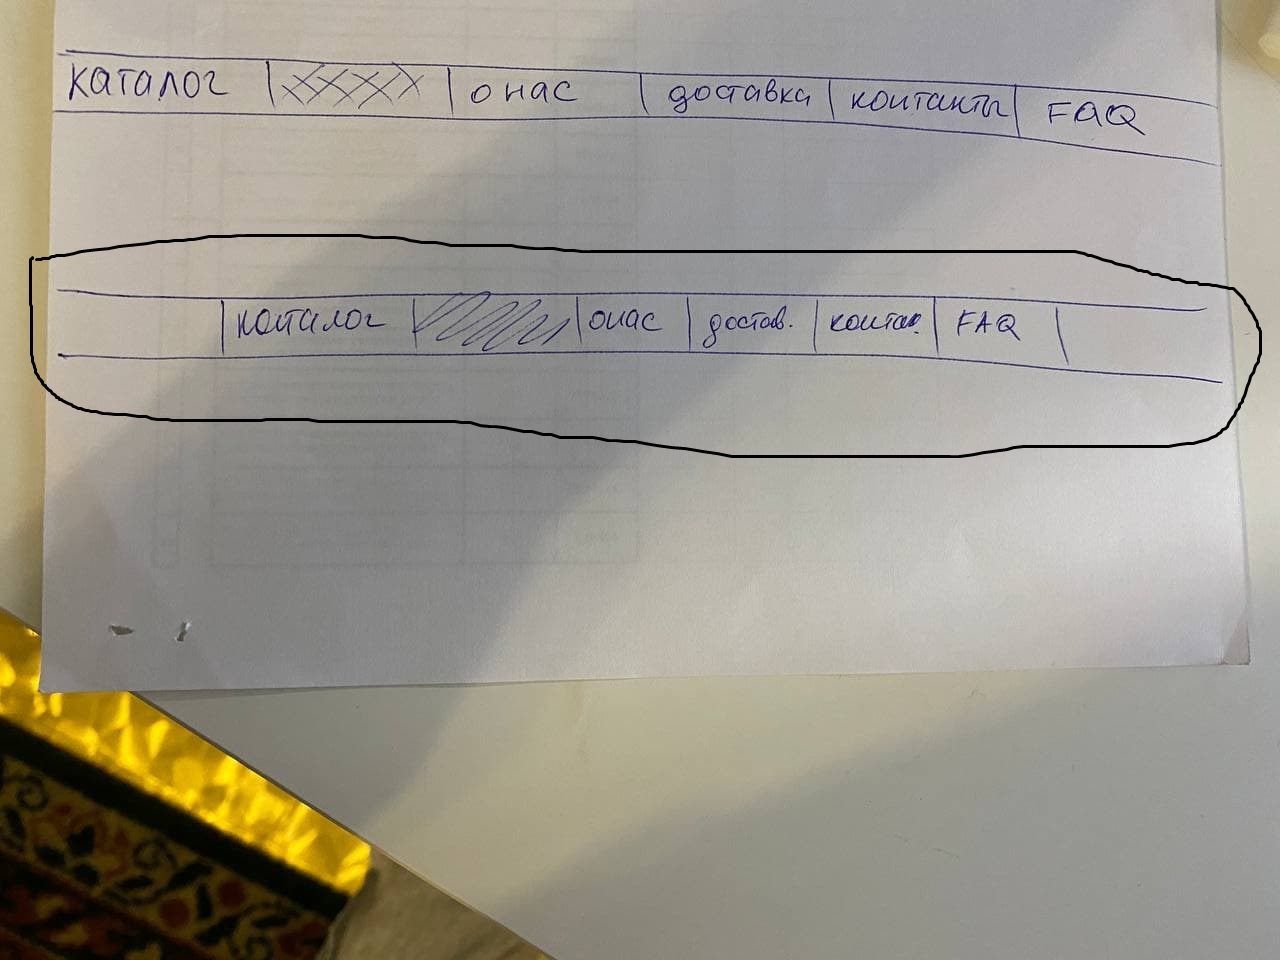 каталог о нас доставка контакты FAQ
каталог о нас достав. контак. FAQ